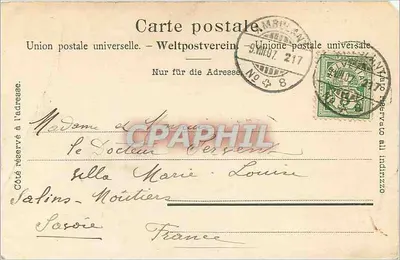 Carte postale.
Union postale universelle. – Weltpostverein. – Unione postale universale.
Nur für die Adresse.
AMBULANT
9.VIII.07. 217
No 8
Côté réservé à l'adresse.
Lato riservato all'indirizzo.
CPAPHIL
Madame et
le Docteur
Villa Marie-Louise
Salins-Moûtiers
Savoie
France